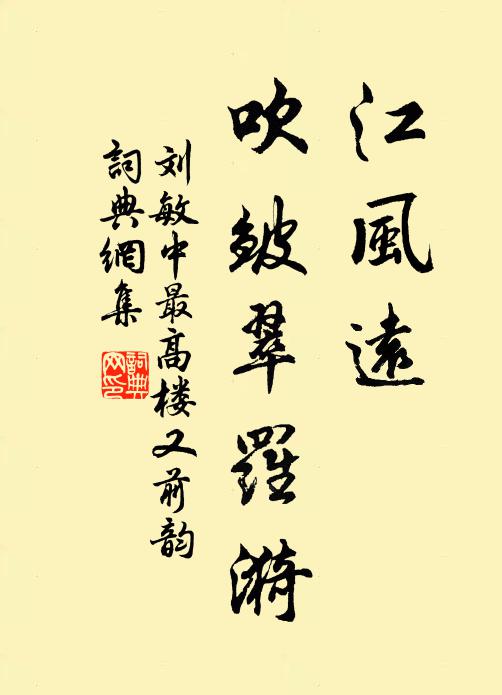 江風遠
吹皺翠羅漪
刘敏中最高楼又前韵
詞典網集
詞典网印